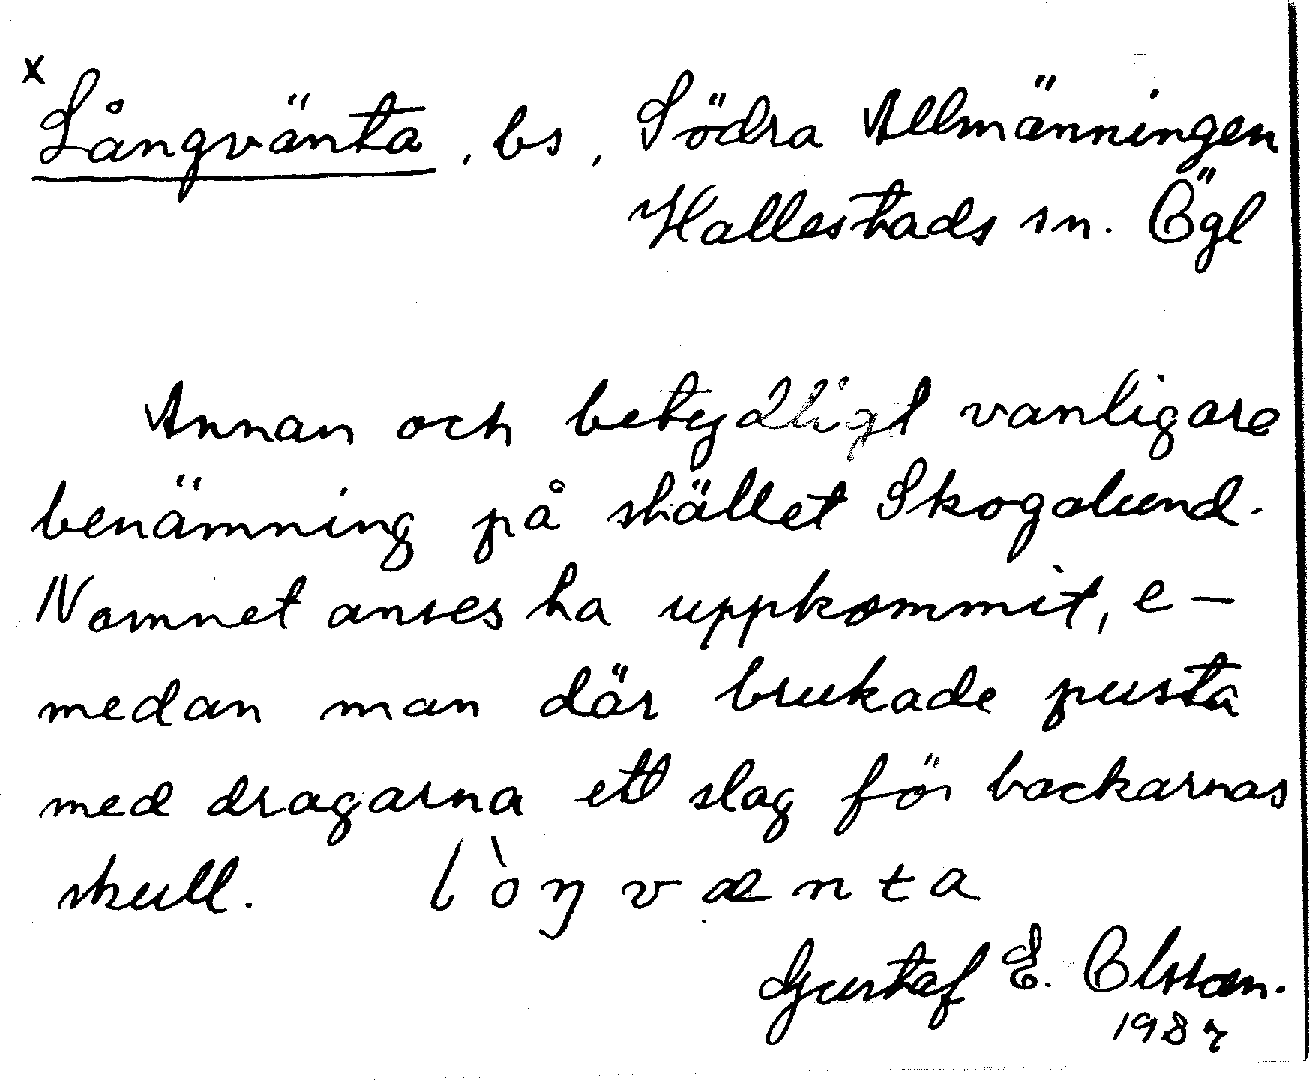 x Långvänta, bs, Södra Allmänningen
Hällestads sn. Ögl
Annan och betydligt vanligare
benämning på stället Skogslund.
Namnet anses ha uppkommit, e-
medan man där brukade pusta
med dragarna ett slag för backarnas
skull. lòŋvænta
Gustaf E. Olsson.
1927